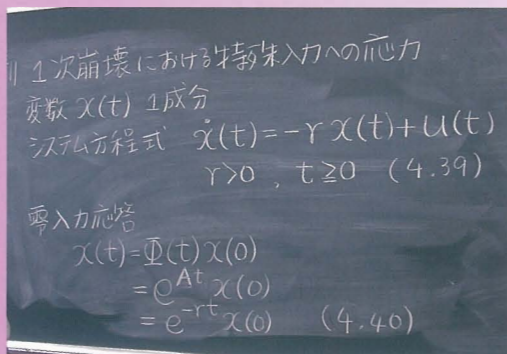 例 1次崩壊における特殊入力への応力
変数 x(t) 1成分
システム方程式 ẋ(t)=-rx(t)+u(t)
r>0 , t≧0 (4.39)
零入力応答
x(t)=Φ(t)x(0)
=e^{At}x(0)
=e^{-rt}x(0) (4.40)